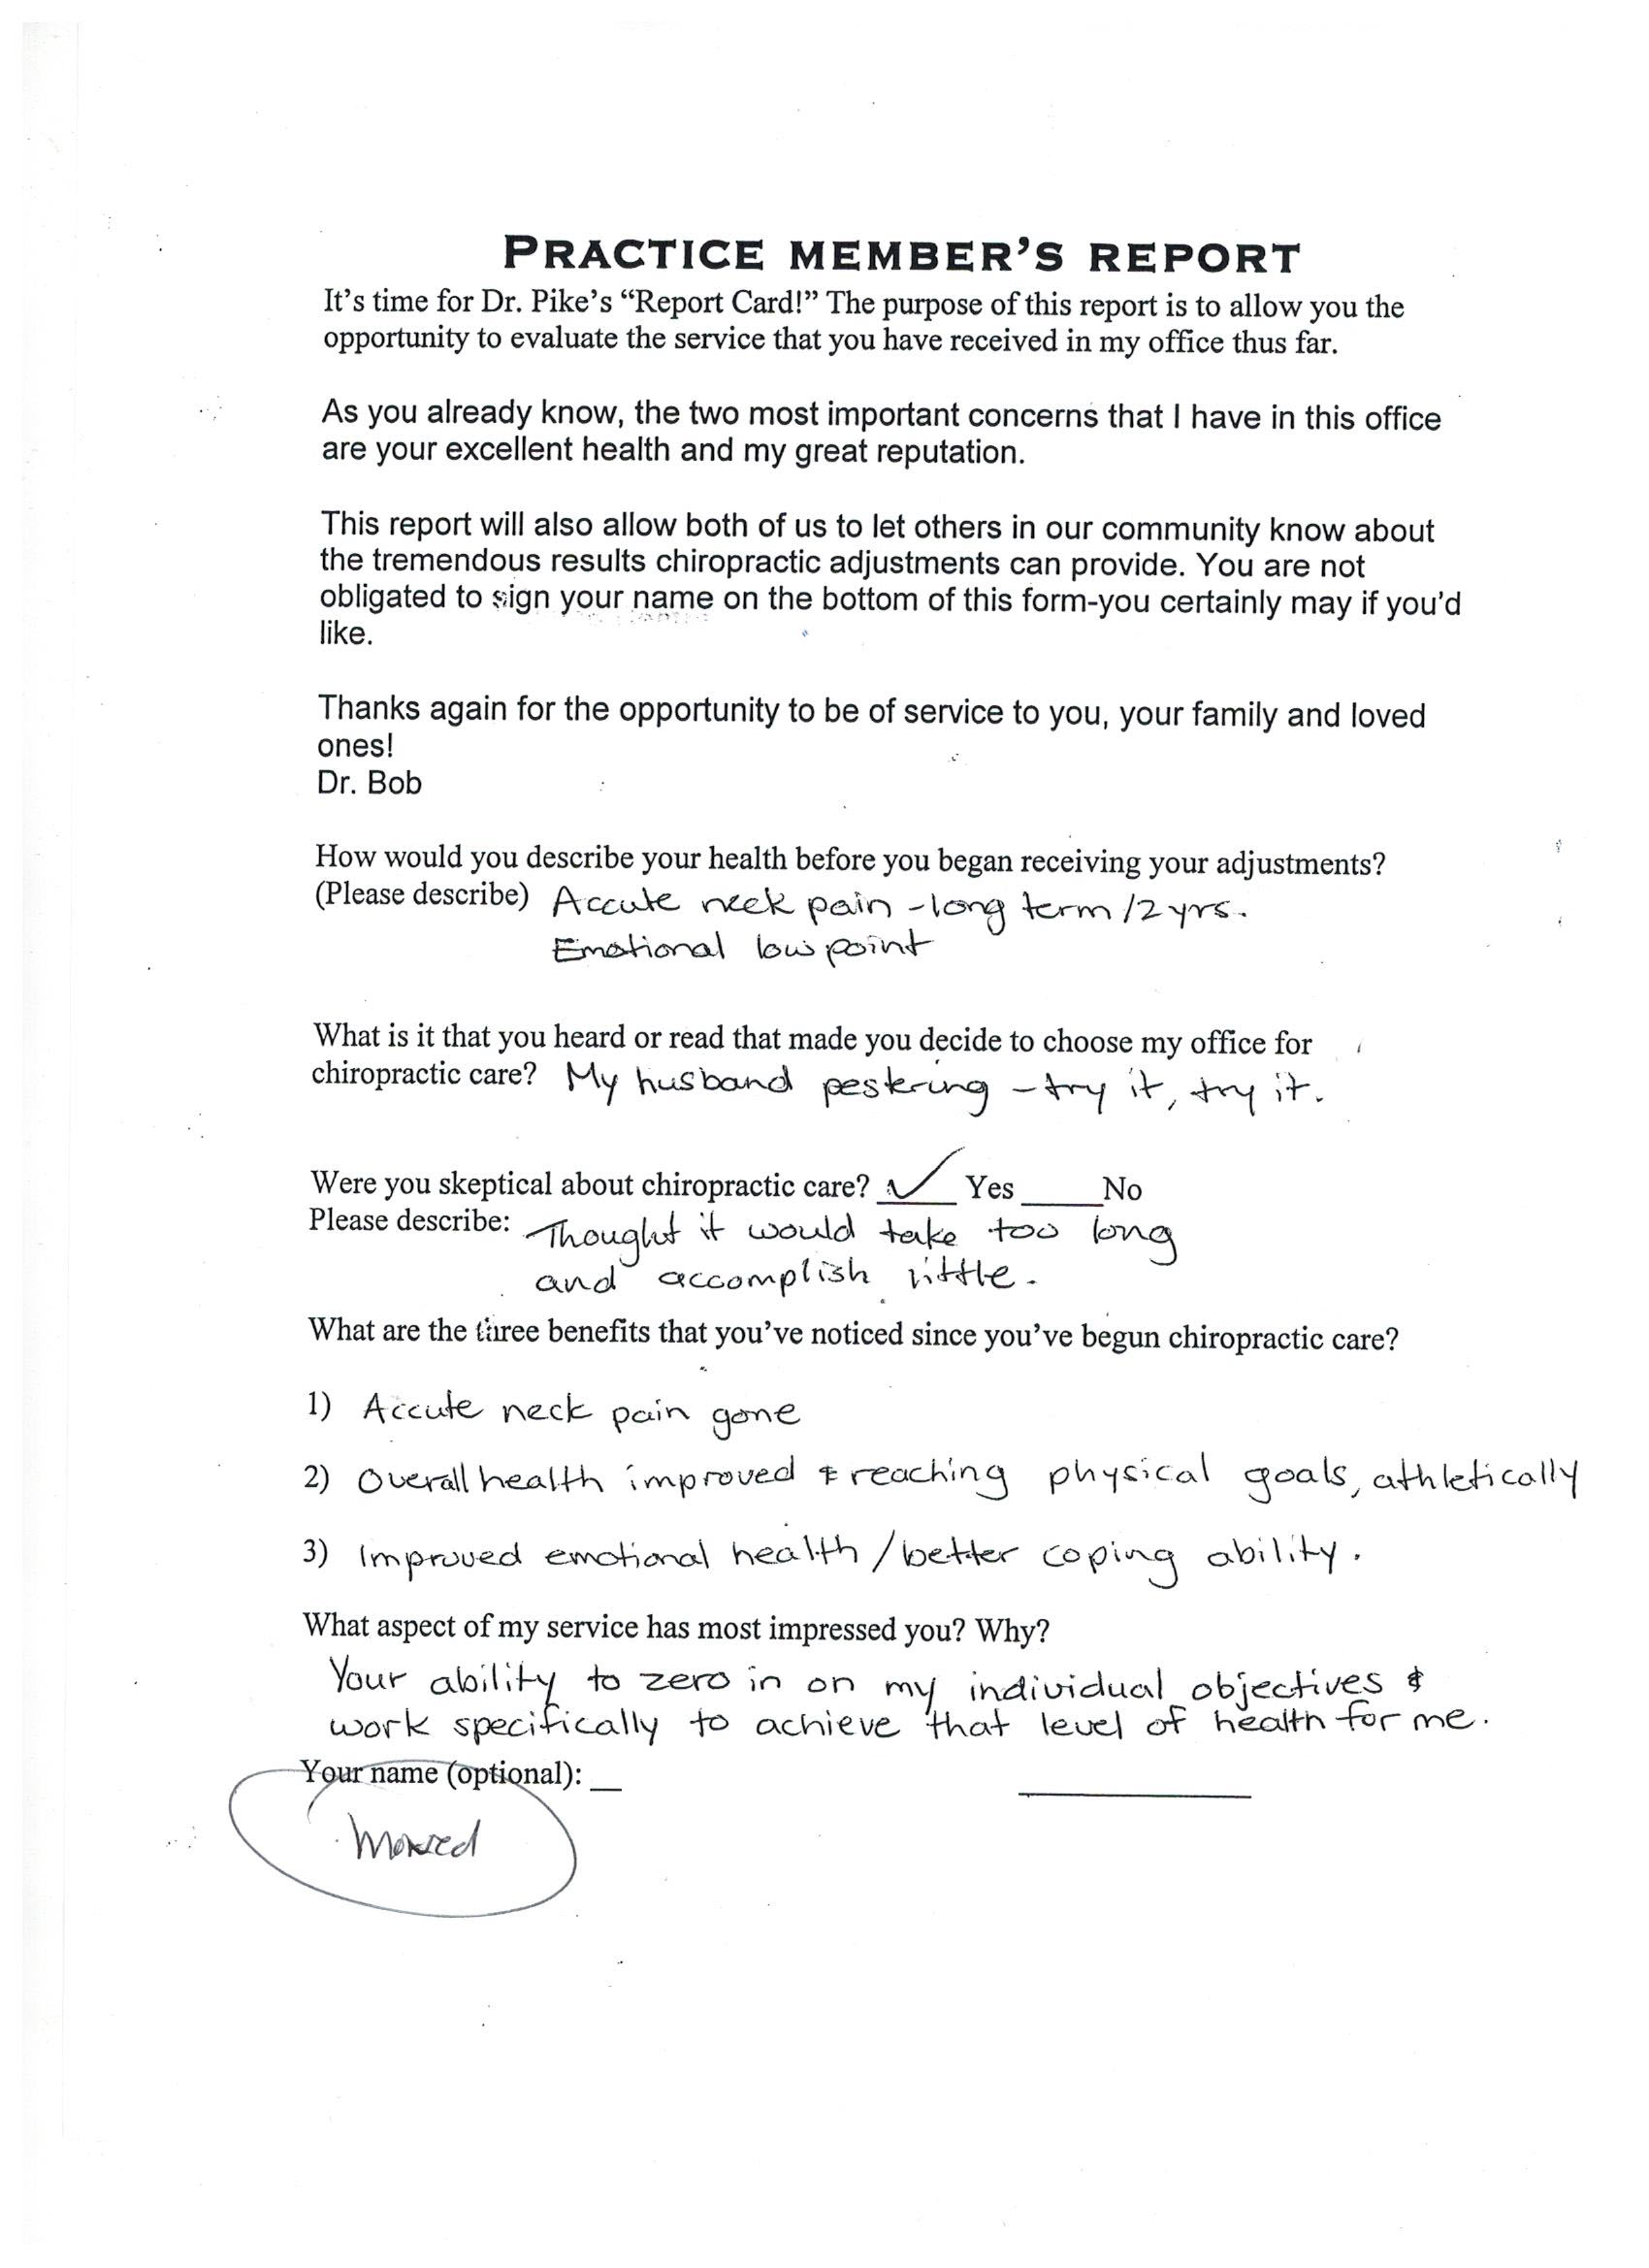 PRACTICE MEMBER'S REPORT
It's time for Dr. Pike's “Report Card!” The purpose of this report is to allow you the
opportunity to evaluate the service that you have received in my office thus far.
As you already know, the two most important concerns that I have in this office
are your excellent health and my great reputation.
This report will also allow both of us to let others in our community know about
the tremendous results chiropractic adjustments can provide. You are not
obligated to sign your name on the bottom of this form-you certainly may if you'd
like.
Thanks again for the opportunity to be of service to you, your family and loved
ones!
Dr. Bob
How would you describe your health before you began receiving your adjustments?
(Please describe) Accute neck pain - long term / 2 yrs.
Emotional low point
What is it that you heard or read that made you decide to choose my office for
chiropractic care? My husband pestering - try it, try it.
Were you skeptical about chiropractic care? ✓ Yes ____ No
Please describe: Thought it would take too long
and accomplish little.
What are the three benefits that you've noticed since you've begun chiropractic care?
1) Accute neck pain gone
2) Overall health improved & reaching physical goals, athletically
3) Improved emotional health / better coping ability.
What aspect of my service has most impressed you? Why?
Your ability to zero in on my individual objectives &
work specifically to achieve that level of health for me.
Your name (optional): __